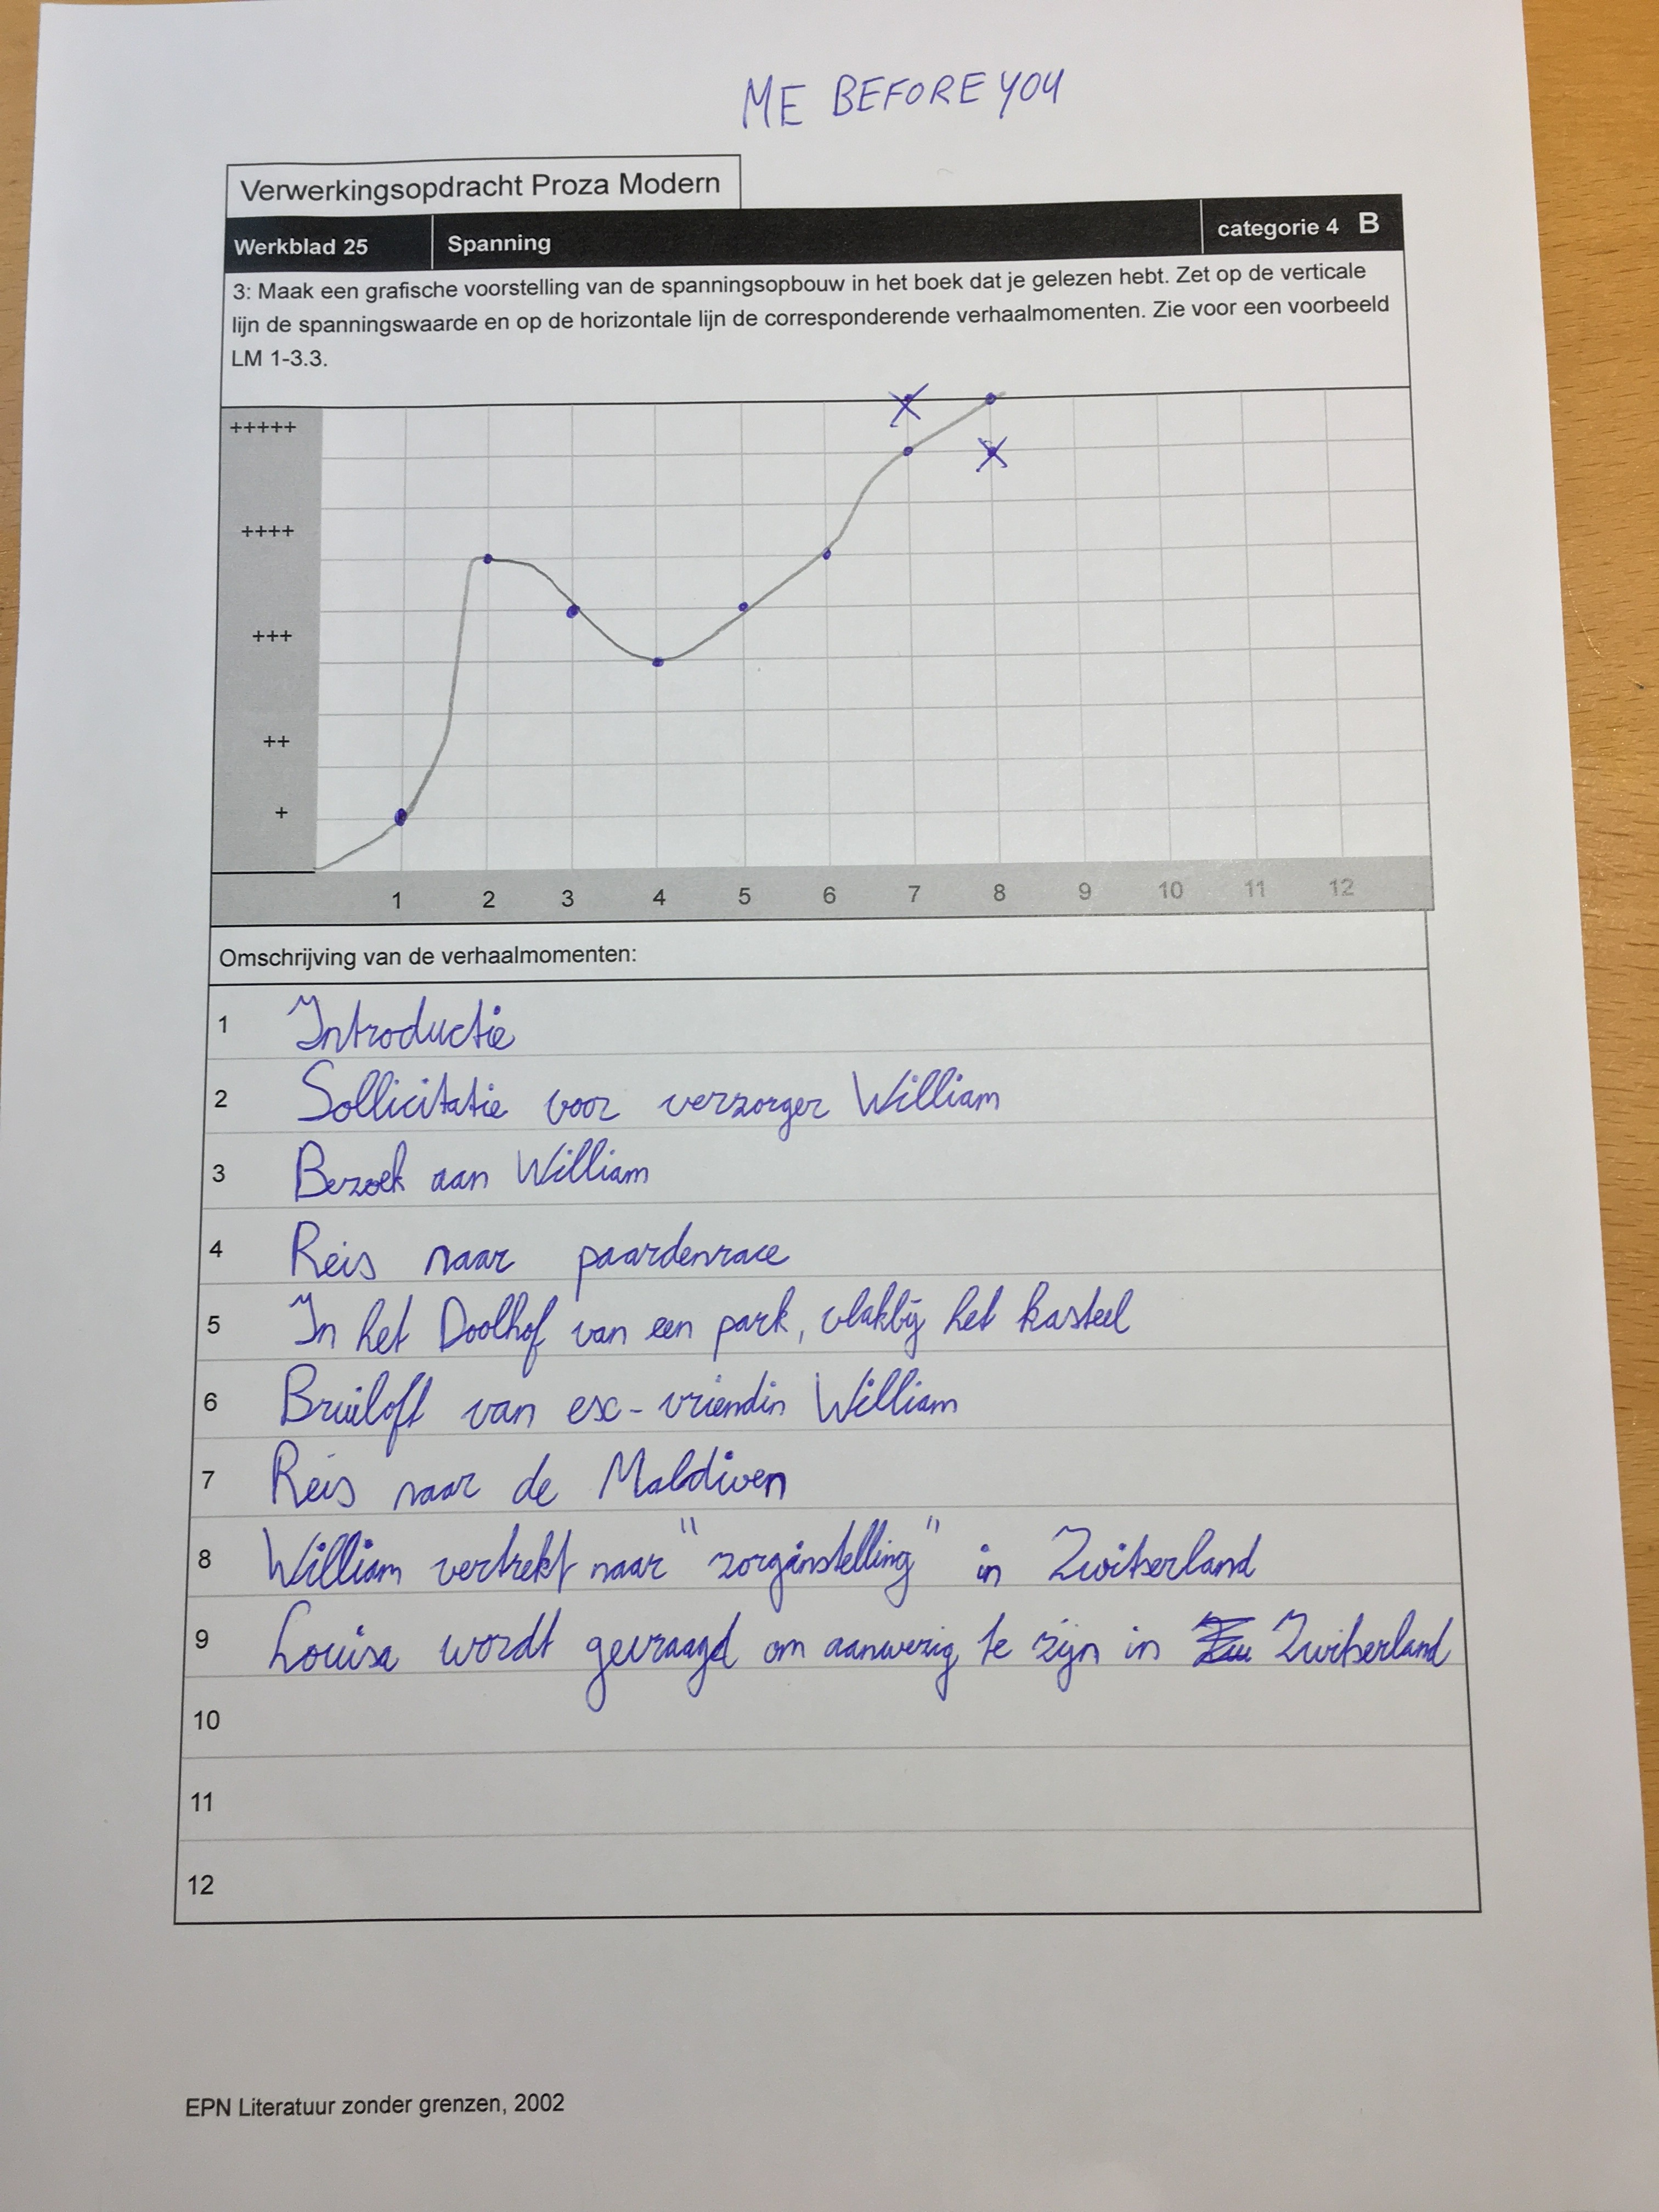 ME BEFORE YOU
Verwerkingsopdracht Proza Modern
Werkblad 25 Spanning categorie 4 B
3: Maak een grafische voorstelling van de spanningsopbouw in het boek dat je gelezen hebt. Zet op de verticale
lijn de spanningswaarde en op de horizontale lijn de corresponderende verhaalmomenten. Zie voor een voorbeeld
LM 1-3.3.
+++++
++++
+++
++
+
1 2 3 4 5 6 7 8 9 10 11 12
Omschrijving van de verhaalmomenten:
1 Introductie
2 Sollicitatie voor verzorger William
3 Bezoek aan William
4 Reis naar paardenrace
5 In het Doolhof van een park, vlakbij het kasteel
6 Bruiloft van ex-vriendin William
7 Reis naar de Maldiven
8 William vertrekt naar "zorginstelling" in Zwitserland
9 Louisa wordt gevraagd om aanwezig te zijn in Zwitserland
10
11
12
EPN Literatuur zonder grenzen, 2002